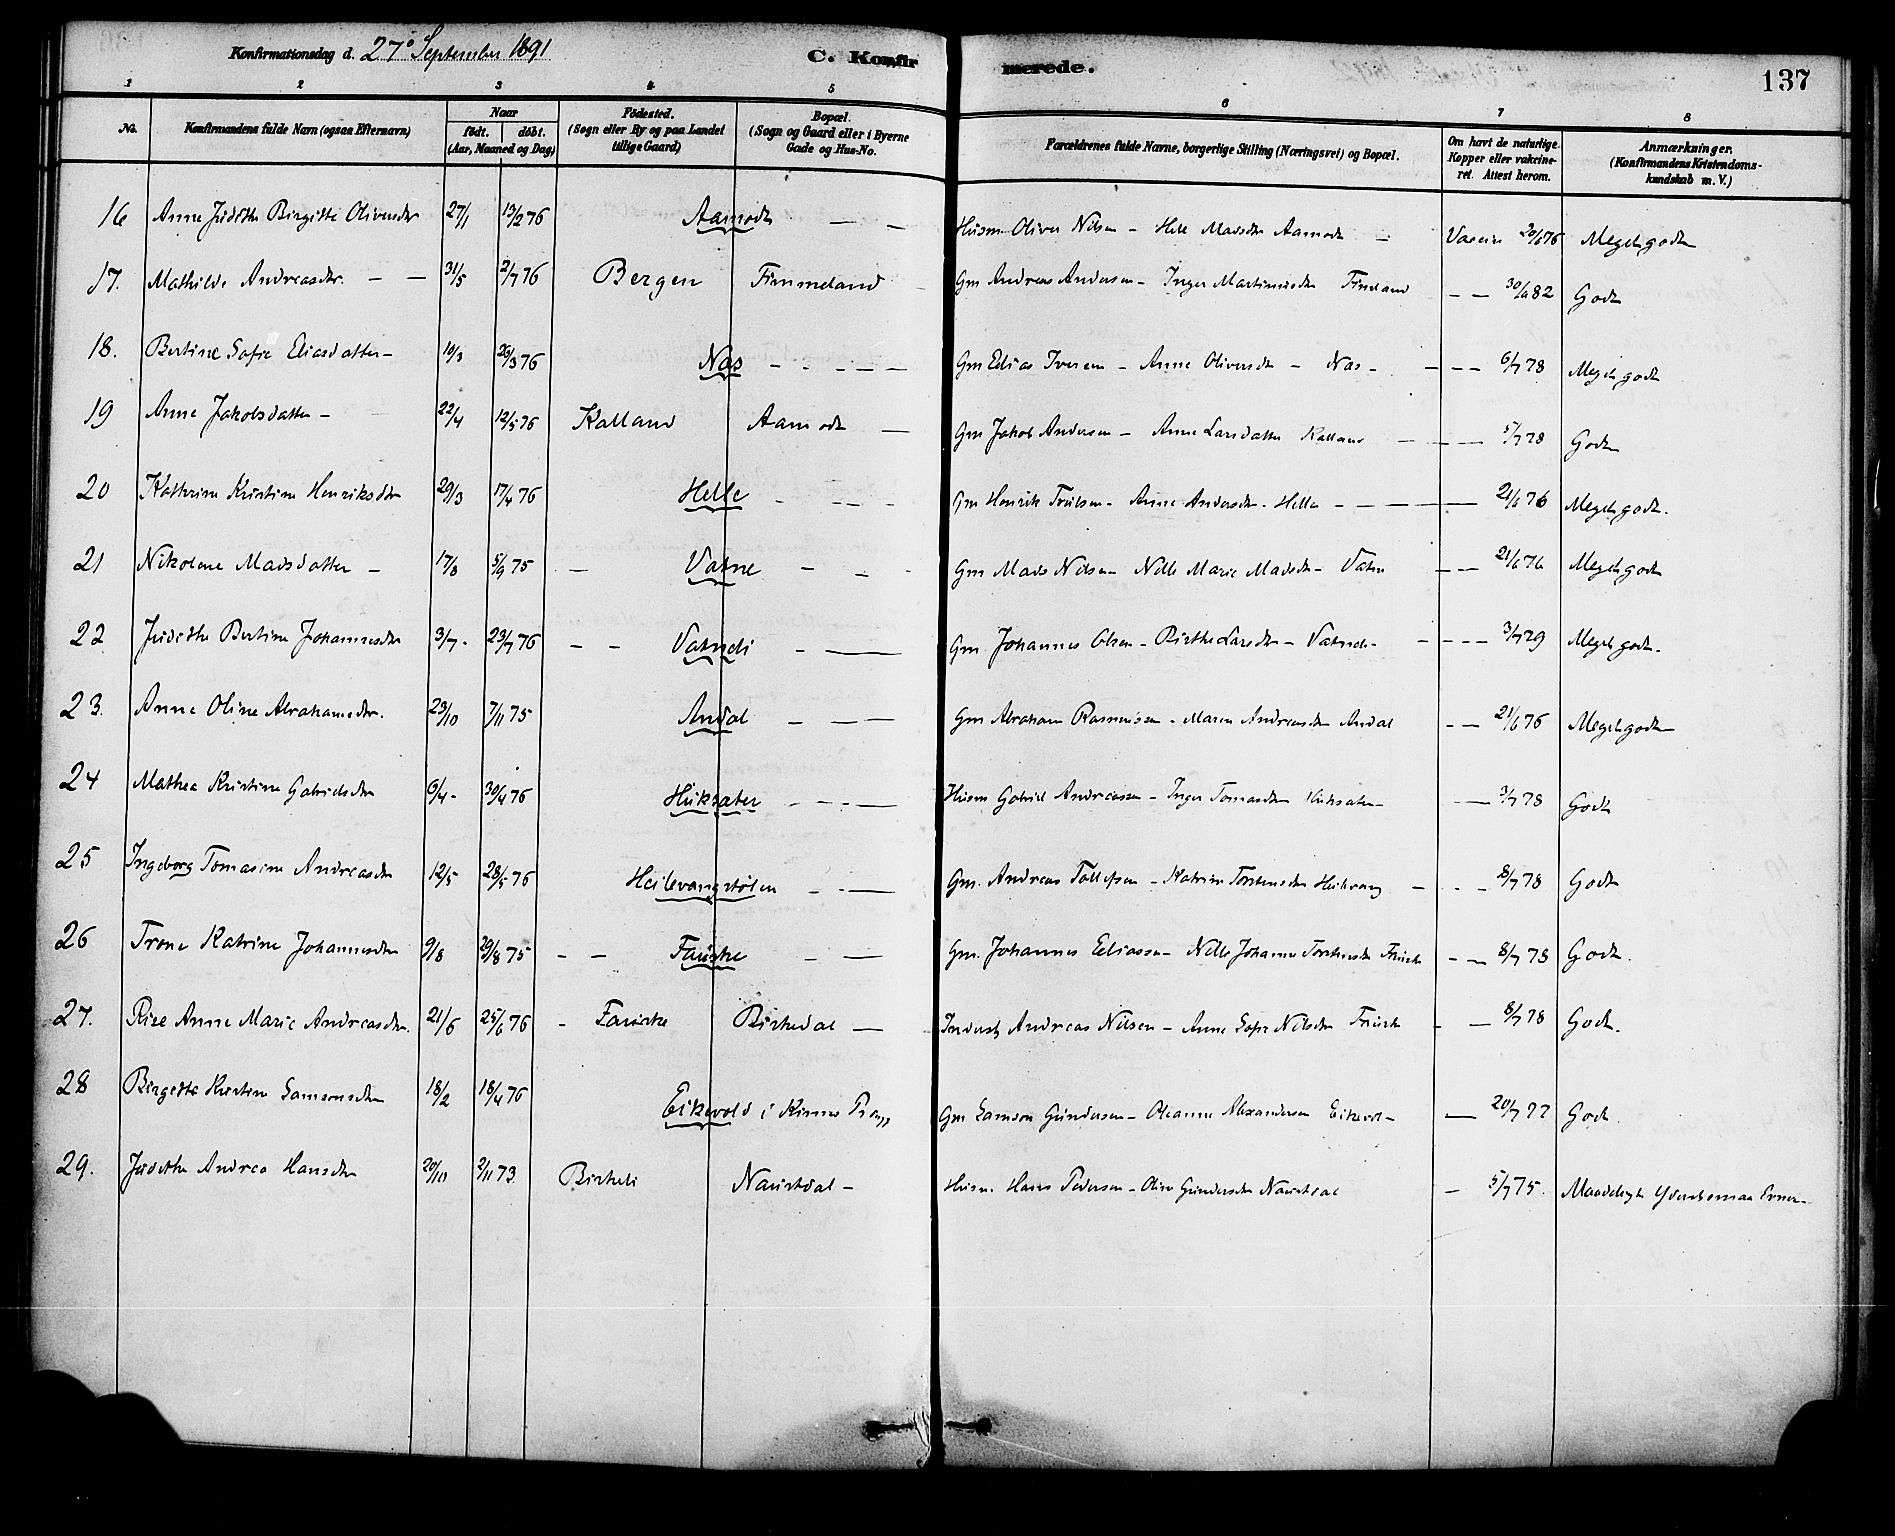 Konfirmationsdag d. 27de September 1891
C. Konfirmerede.
137
1 2 3 4 5 6 7 8
No.
Konfirmandens fulde Navn (ogsaa Efternavn)
Naar
født. døbt.
(Aar, Maaned og Dag)
Fødested.
(Sogn eller By og paa Landet
tillige Gaard)
Bopæl.
(Sogn og Gaard eller i Byerne
Gade og Hus-No.
Forældrenes fulde Navne, borgerlige Stilling (Næringsvei) og Bopæl.
Om havt de naturlige
Kopper eller vakcine-
ret. Attest herom.
Anmærkninger.
(Konfirmandens Kristendoms-
kundskab m. V.)
16 Anne Judithe Birgitte Oliversdtr 27/1 13/2 76 Aamodt — — Husm Oliver Nilsen — Madsdtr Aamodt — Vaccin 76 Megetgodt
17. Mathilde Andreasdtr. — — 31/5 2/7 76 Bergen Fimmeland Gm Andreas Andersen — Inger — — 82 Godt
18. Bertine Sofie Eliasdatter — 10/3 26/3 76 Nas — — — — Gm Elias Iversen — Anne Oliversdtr — Nas — — — — 6/7 78 Megetgodt
19 Anne Jakobsdatter — 22/4 12/5 76 Kalland Aamodt — Gm Jakob Andersen — Anne Larsdatter Kalland — — — 5/7 78 Godt
20 Kathrine Kristine Henriksdtr 29/3 17/4 76 Helle — — — Gm Henrik Trulsen — Anne Andersdtr — Helle — — — — 21/6 76 Megetgodt.
21 Nikoline Madsdatter — 17/8 5/9 75 — Vatne — — — Gm Mads Nilsen — Marie Madsdtr — Vatne — — 21/6 76 Megetgodt
22 Judithe Bertine Johannesdtr 3/7 — 23/7 76 — — Vatneli — — Gm Johannes Olsen — Birthe Larsdtr — — — — — 3/7 Megetgodt.
23. Anne Oline Abrahamsdtr. 23/10 7/11 75 Andal — — — Gm Abraham Rasmussen — Maren Andreasdtr Andal — — 21/6 76 Megetgodt
24 Mathea Kristine Gabrielsdtr 6/4 — 30/4 76 Huksæter — — — Husm Gabriel Andreassen — Inger Tomasdtr Huksæter — — — 3/7 78 Godt
25 Ingeborg Tomasine Andreasdtr 12/5 28/5 76 Heilevangstølen — — Gm. Andreas Tollefsen — Katrine Torstensdtr Heilevang — — — 8/7 78 Godt
26 Trone Katrine Johannesdtr 9/8 29/8 75 — — Fauske — — Gm. Johannes Eliassen — Johanne Torstensdtr — — 8/7 78 Godt.
27. Anne Marie Andreasdtr. 21/5 25/6 76 — Birkedal — Inderst Andreas Nilsen — Anne Sofie Nilsdtr — — 8/7 78 Godt.
28 Birgitte Kristine Samsonsdtr 18/2 18/4 76 Eikevold i Kinns Gm Samson Gundersen — Oleanne — — 20/7 77 Godt.
29. Judithe Andrea Hansdtr 20/10 2/11 73. Birkeli Naustdal — Husm. Hans Pedersen — Oline Gundersdtr Naustdal — 5/7 75.